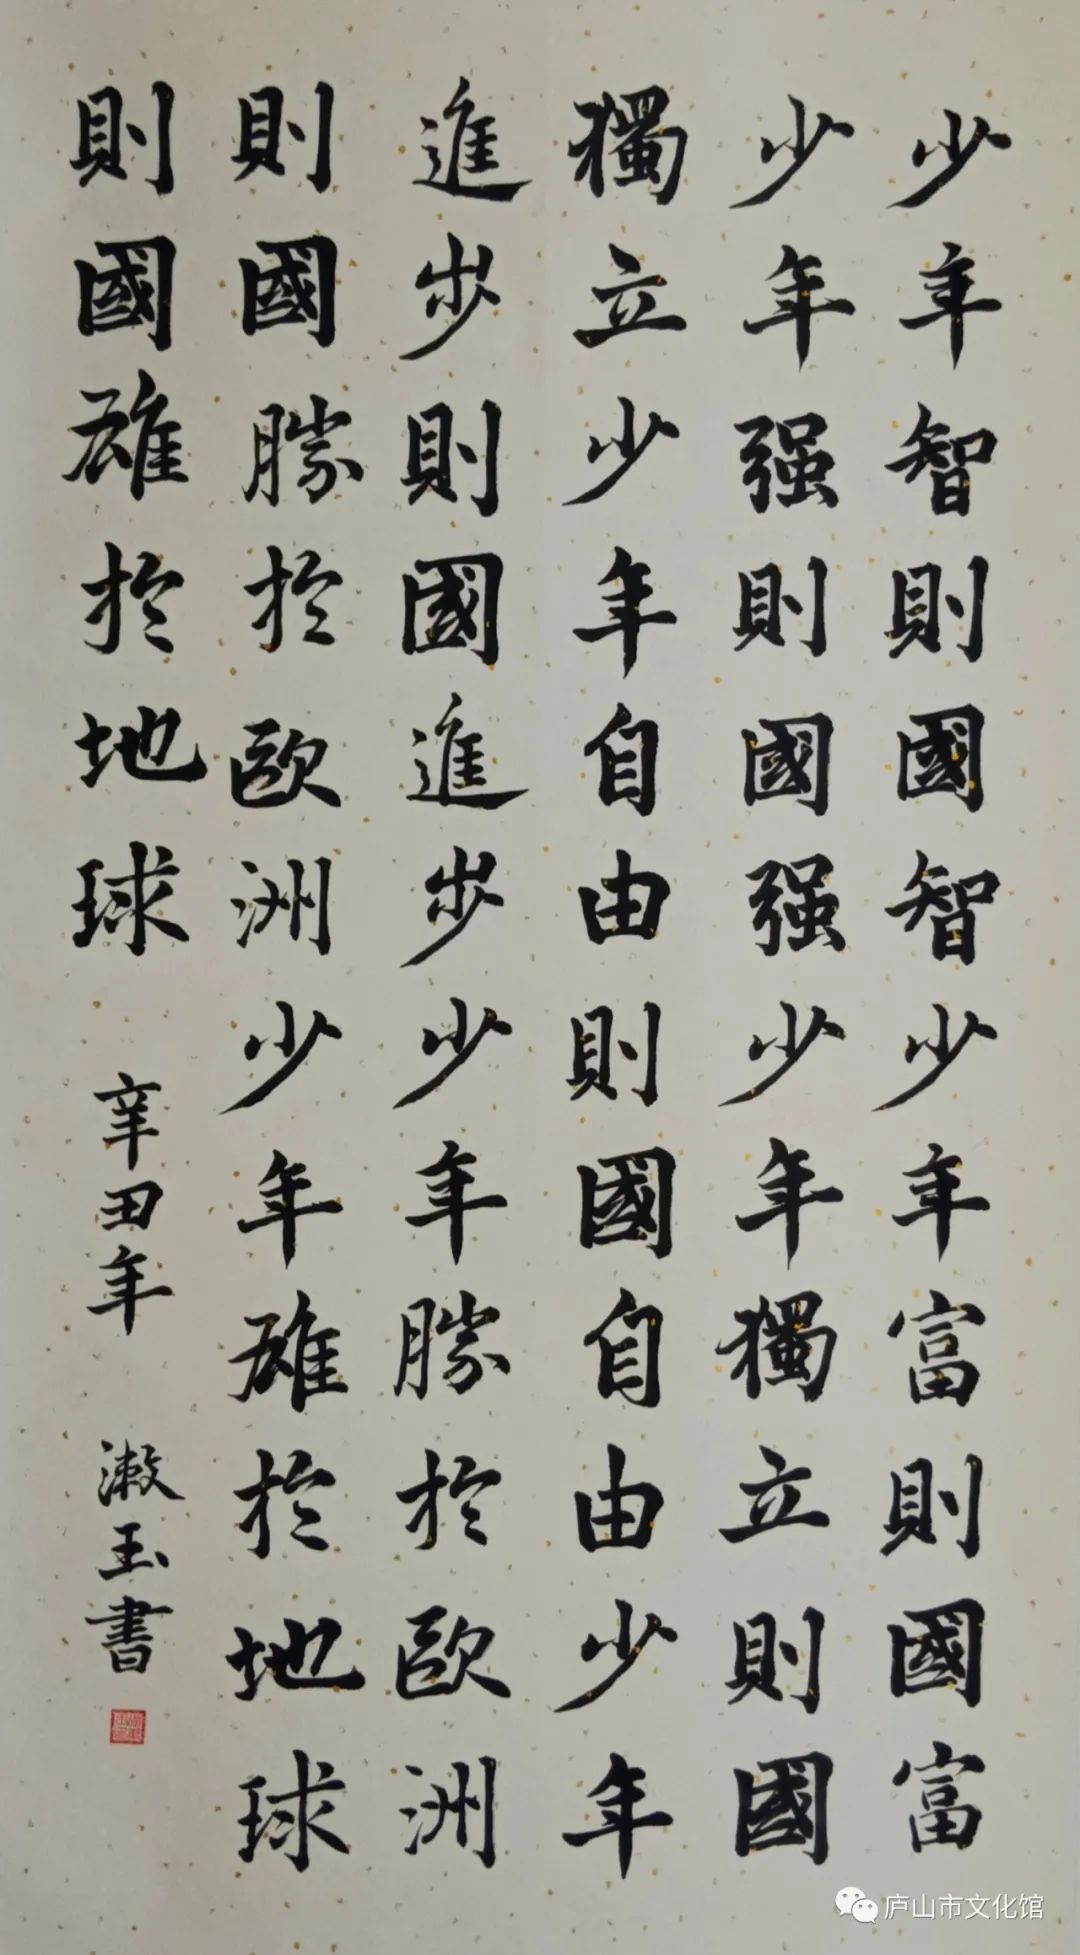 少年智則國智少年富則國富
少年强則國强少年獨立則國
獨立少年自由則國自由少年
進步則國進步少年勝於歐洲
則國勝於歐洲少年雄於地球
則國雄於地球
辛丑年 漱玉書
庐山市文化馆